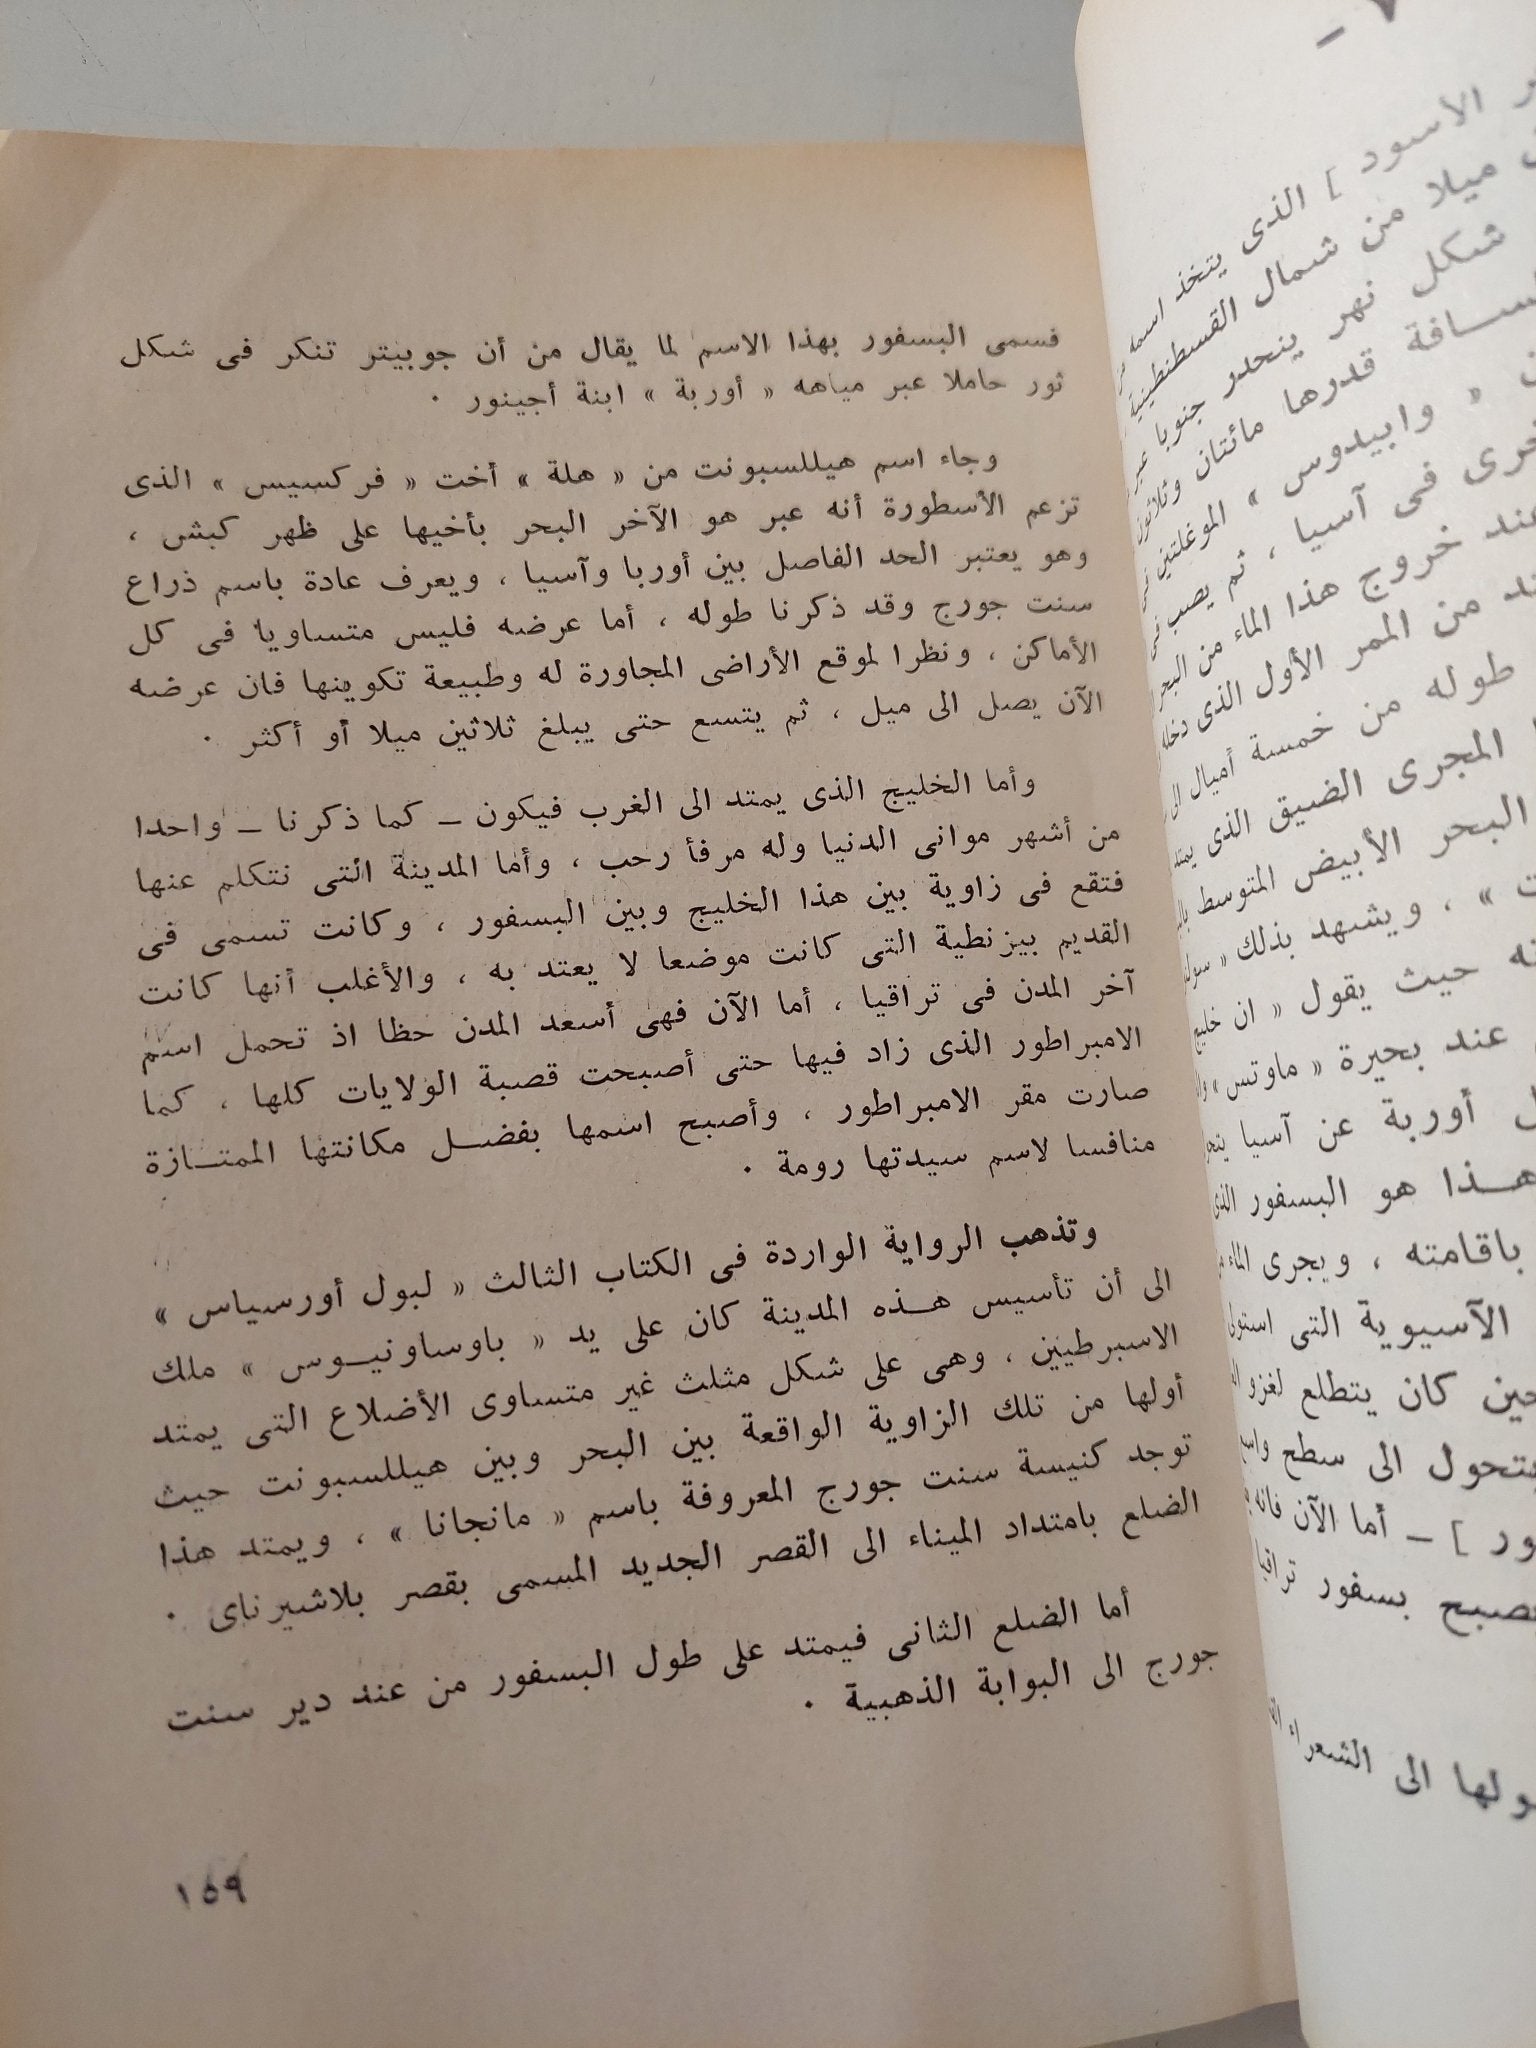 فسمى البسفور بهذا الاسم لما يقال من أن جوبيتر تنكر فى شكل
ثور حاملا عبر مياهه « أوربة » ابنة أجينور ٠
وجاء اسم هيللسبونت من « هلة » أخت « فركسيس » الذى
تزعم الأسطورة أنه عبر هو الآخر البحر بأخيها على ظهر كبش ،
وهو يعتبر الحد الفاصل بين أوربا وآسيا ، ويعرف عادة باسم ذراع
سنت جورج وقد ذكرنا طوله ، أما عرضه فليس متساويا فى كل
الأماكن ، ونظرا لموقع الأراضى المجاورة له وطبيعة تكوينها فان عرضه
الآن يصل الى ميل ، ثم يتسع حتى يبلغ ثلاثين ميلا أو أكثر ٠
وأما الخليج الذى يمتد الى الغرب فيكون ــ كما ذكرنا ــ واحدا
من أشهر موانى الدنيا وله مرفأ رحب ، وأما المدينة التى نتكلم عنها
فتقع فى زاوية بين هذا الخليج وبين البسفور ، وكانت تسمى فى
القديم بيزنطية التى كانت موضعا لا يعتد به ، والأغلب أنها كانت
آخر المدن فى تراقيا ، أما الآن فهى أسعد المدن حظا اذ تحمل اسم
الامبراطور الذى زاد فيها حتى أصبحت قصبة الولايات كلها ، كما
صارت مقر الامبراطور ، وأصبح اسمها بفضل مكانتها الممتازة
منافسا لاسم سيدتها رومة ٠
وتذهب الرواية الواردة فى الكتاب الثالث « لبول أورسياس »
الى أن تأسيس هذه المدينة كان على يد « باوساونيوس » ملك
الاسبرطيين ، وهى على شكل مثلث غير متساوى الأضلاع التى يمتد
أولها من تلك الزاوية الواقعة بين البحر وبين هيللسبونت حيث
توجد كنيسة سنت جورج المعروفة باسم « مانجانا » ، ويمتد هذا
الضلع بامتداد الميناء الى القصر الجديد المسمى بقصر بلاشيرناى ٠
أما الضلع الثانى فيمتد على طول البسفور من عند دير سنت
جورج الى البوابة الذهبية ٠
١٥٩
الأسود ] الذى يتخذ اسمه
ميلا من شمال القسطنطينية
شكل نهر ينحدر جنوبا
قدرها مائتان وثلاثون
« وابيدوس » الموغلتين
فى آسيا ، ثم يصب فى
خروج هذا الماء من البحر
من الممر الأول الذى دخله
طوله من خمسة أميال
المجرى الضيق الذى يمتد
البحر الأبيض المتوسط
» ، ويشهد بذلك «
حيث يقول « ان خليج
عند بحيرة « ماوتس »
أوربة عن آسيا
هذا هو البسفور
باقامته ، ويجرى الماء
الآسيوية التى
حين كان يتطلع لغزو
الى سطح
] ــ أما الآن فانه
بسفور
الى الشعراء